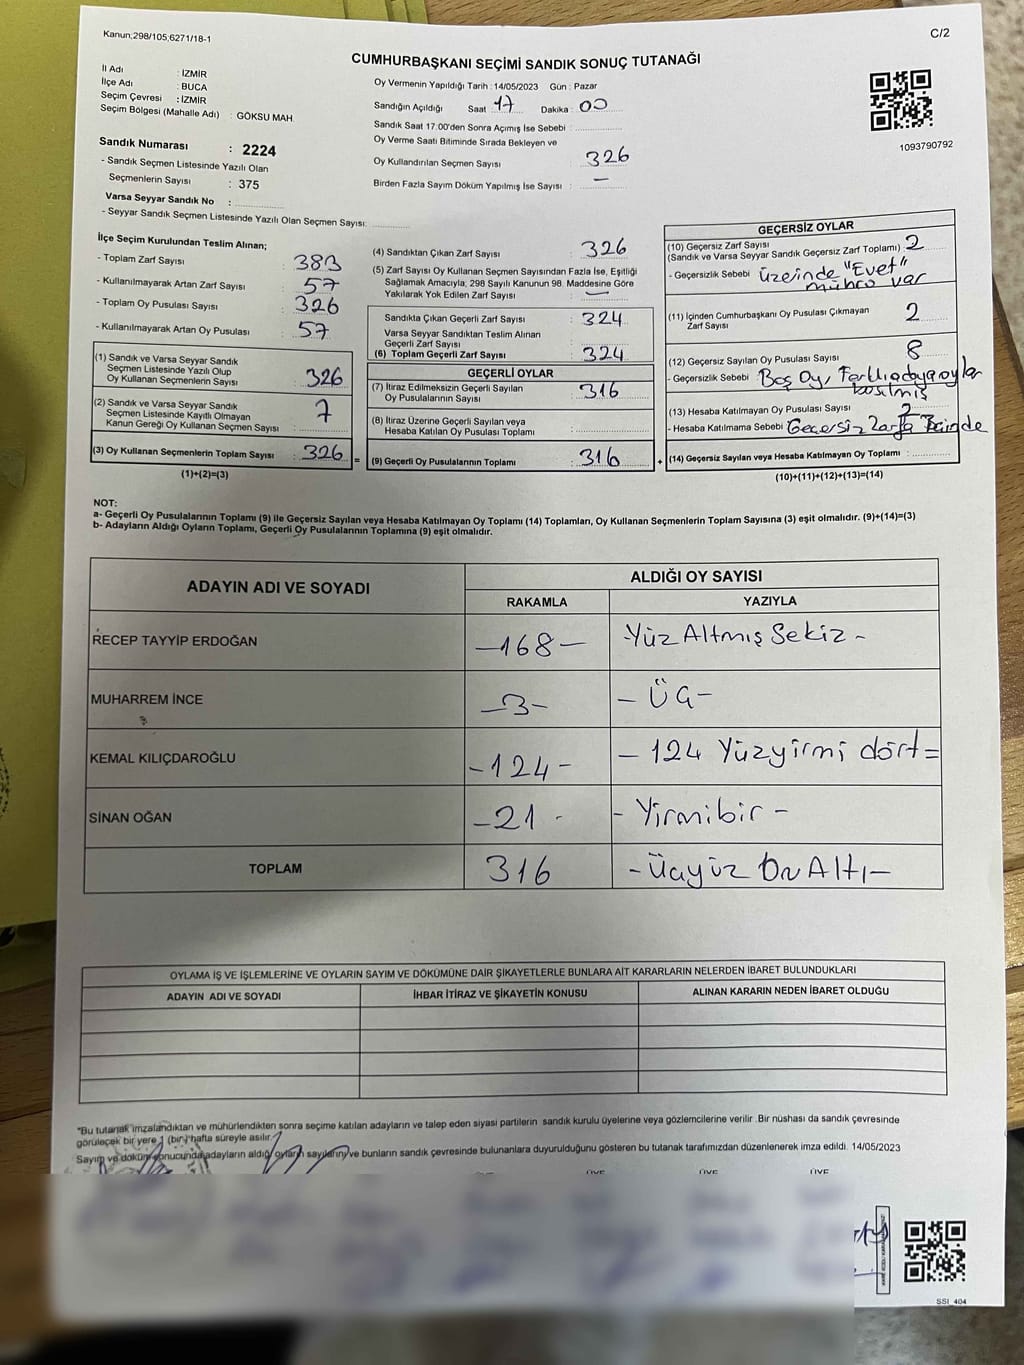 Kanun;298/105;6271/18-1
C/2
CUMHURBAŞKANI SEÇİMİ SANDIK SONUÇ TUTANAĞI
İl Adı : İZMİR
İlçe Adı : BUCA
Seçim Çevresi : İZMİR
Seçim Bölgesi (Mahalle Adı) : GÖKSU MAH.
Sandık Numarası : 2224
- Sandık Seçmen Listesinde Yazılı Olan
Seçmenlerin Sayısı : 375
Varsa Seyyar Sandık No :
- Seyyar Sandık Seçmen Listesinde Yazılı Olan Seçmen Sayısı:
Oy Vermenin Yapıldığı Tarih : 14/05/2023 Gün : Pazar
Sandığın Açıldığı Saat 17 Dakika : 00
Sandık Saat 17.00'den Sonra Açımış İse Sebebi :
Oy Verme Saati Bitiminde Sırada Bekleyen ve
Oy Kullandırılan Seçmen Sayısı : 326
Birden Fazla Sayım Döküm Yapılmış İse Sayısı : —
1093790792
İlçe Seçim Kurulundan Teslim Alınan;
- Toplam Zarf Sayısı : 383
- Kullanılmayarak Artan Zarf Sayısı : 57
- Toplam Oy Pusulası Sayısı : 326
- Kullanılmayarak Artan Oy Pusulası : 57
(1) Sandık ve Varsa Seyyar Sandık
Seçmen Listesinde Yazılı Olup
Oy Kullanan Seçmenlerin Sayısı : 326
(2) Sandık ve Varsa Seyyar Sandık
Seçmen Listesinde Kayıtlı Olmayan
Kanun Gereği Oy Kullanan Seçmen Sayısı : 7
(3) Oy Kullanan Seçmenlerin Toplam Sayısı : 326 =
(1)+(2)=(3)
(4) Sandıktan Çıkan Zarf Sayısı : 326
(5) Zarf Sayısı Oy Kullanan Seçmen Sayısından Fazla İse, Eşitliği
Sağlamak Amacıyla, 298 Sayılı Kanunun 98. Maddesine Göre
Yakılarak Yok Edilen Zarf Sayısı : —
Sandıkta Çıkan Geçerli Zarf Sayısı : 324
Varsa Seyyar Sandıktan Teslim Alınan
Geçerli Zarf Sayısı :
(6) Toplam Geçerli Zarf Sayısı : 324
GEÇERLİ OYLAR
(7) İtiraz Edilmeksizin Geçerli Sayılan
Oy Pusulalarının Sayısı : 316
(8) İtiraz Üzerine Geçerli Sayılan veya
Hesaba Katılan Oy Pusulası Toplamı :
(9) Geçerli Oy Pusulalarının Toplamı : 316 +
GEÇERSİZ OYLAR
(10) Geçersiz Zarf Sayısı
(Sandık ve Varsa Seyyar Sandık Geçersiz Zarf Toplamı) : 2
- Geçersizlik Sebebi : üzerinde "Evet"
mührü var
(11) İçinden Cumhurbaşkanı Oy Pusulası Çıkmayan
Zarf Sayısı : 2
(12) Geçersiz Sayılan Oy Pusulası Sayısı : 8
- Geçersizlik Sebebi : Boş Oy, oylar
basılmış
(13) Hesaba Katılmayan Oy Pusulası Sayısı : 2
- Hesaba Katılmama Sebebi : Geçersiz Zarfın İçinde
(14) Geçersiz Sayılan veya Hesaba Katılmayan Oy Toplamı :
(10)+(11)+(12)+(13)=(14)
NOT:
a- Geçerli Oy Pusulalarının Toplamı (9) ile Geçersiz Sayılan veya Hesaba Katılmayan Oy Toplamı (14) Toplamları, Oy Kullanan Seçmenlerin Toplam Sayısına (3) eşit olmalıdır. (9)+(14)=(3)
b- Adayların Aldığı Oyların Toplamı, Geçerli Oy Pusulalarının Toplamına (9) eşit olmalıdır.
ADAYIN ADI VE SOYADI
ALDIĞI OY SAYISI
RAKAMLA YAZIYLA
RECEP TAYYİP ERDOĞAN —168— Yüz Altmış Sekiz -
MUHARREM İNCE -3- - Üç -
KEMAL KILIÇDAROĞLU -124- - 124 Yüzyirmi dört =
SİNAN OĞAN -21 - - Yirmibir -
TOPLAM 316 -Üçyüz On Altı-
OYLAMA İŞ VE İŞLEMLERİNE VE OYLARIN SAYIM VE DÖKÜMÜNE DAİR ŞİKAYETLERLE BUNLARA AİT KARARLARIN NELERDEN İBARET BULUNDUKLARI
ADAYIN ADI VE SOYADI İHBAR İTİRAZ VE ŞİKAYETİN KONUSU ALINAN KARARIN NEDEN İBARET OLDUĞU
"Bu tutanak imzalandıktan ve mühürlendikten sonra seçime katılan adayların ve talep eden siyasi partilerin sandık kurulu üyelerine veya gözlemcilerine verilir. Bir nüshası da sandık çevresinde
görülecek bir yere 1 (bir) hafta süreyle asılır."
Sayım ve döküm sonucunda adayların aldığı oyların sayılarını ve bunların sandık çevresinde bulunanlara duyurulduğunu gösteren bu tutanak tarafımızdan düzenlenerek imza edildi. 14/05/2023
ÜYE ÜYE ÜYE
SSI_404